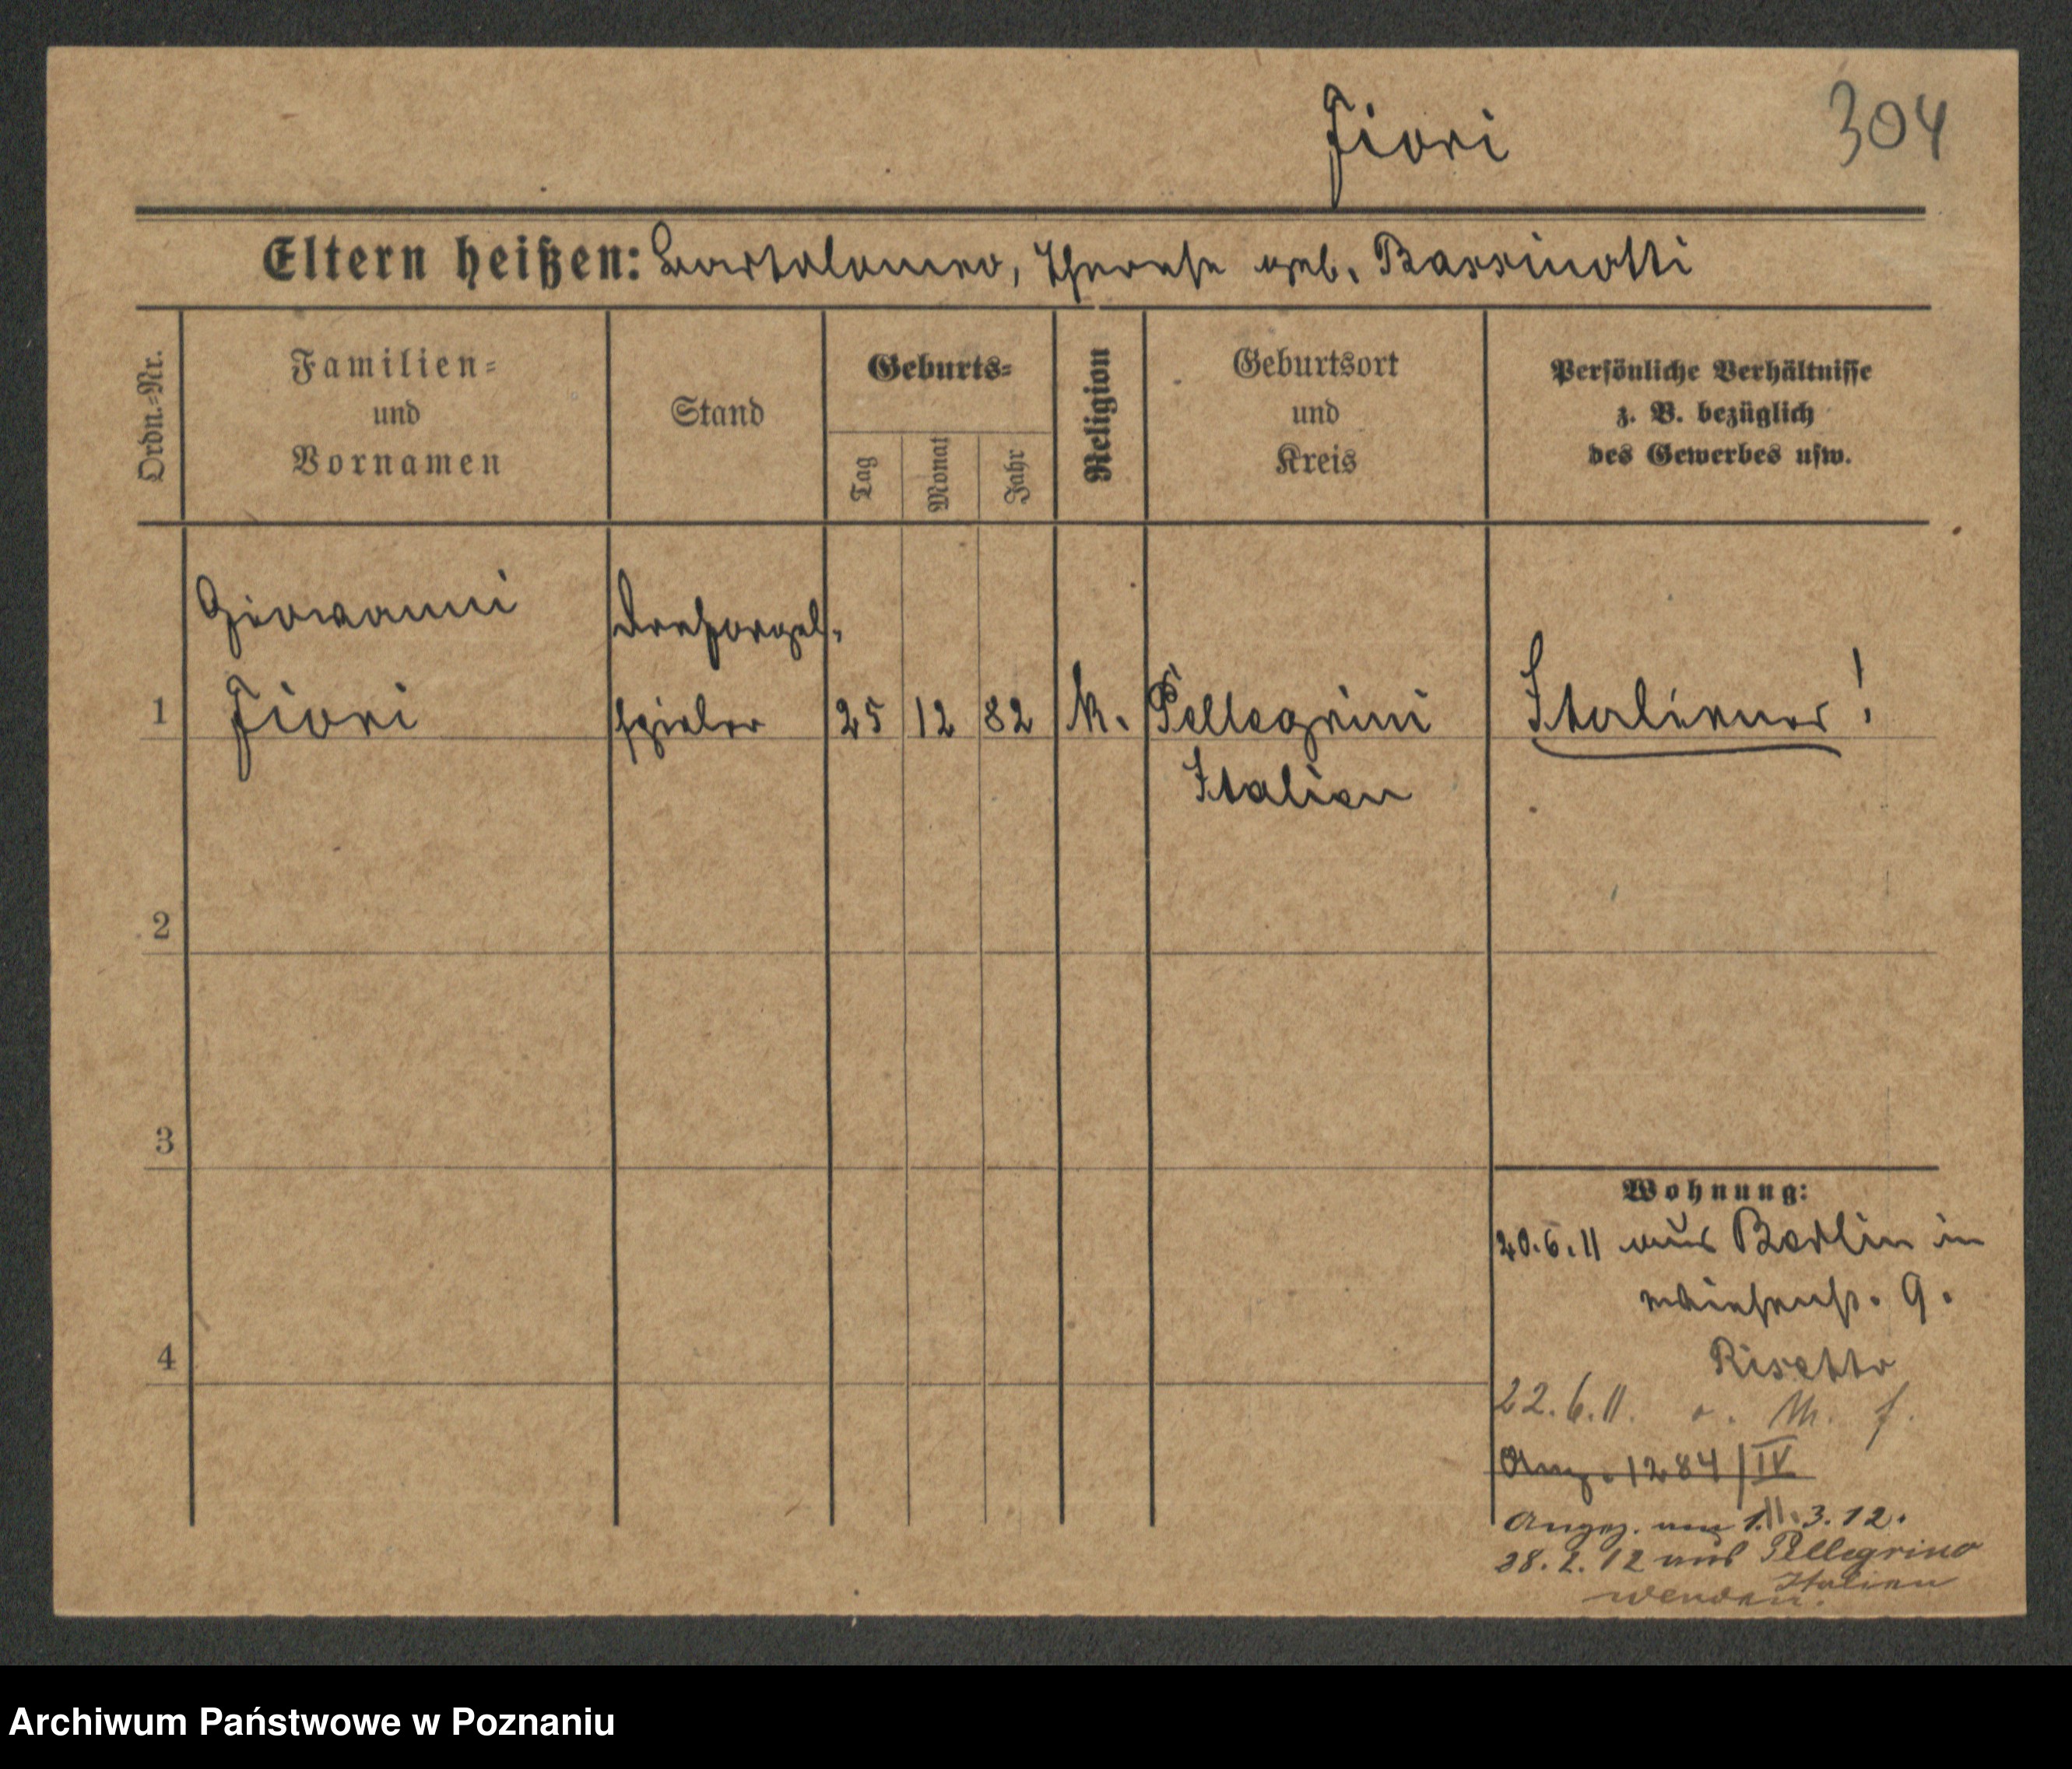 Fiori
304
Eltern heißen: Bartolomeo, Therese geb. Bassinotti
Ordn.-Nr.
Familien-
und
Vornamen
Stand
Geburts-
Tag
Monat
Jahr
Religion
Geburtsort
und
Kreis
Persönliche Verhältnisse
z. B. bezüglich
des Gewerbes usw.
Giovanni
Drehorgel-
1 Fiori spieler 25 12 82 k. Pellegrini Italiener!
Italien
2
3
4
Wohnung:
20.6.11 aus Berlin in
9.
Risetto
22.6.11. o. M. f.
Anz. 1284/IV
Angez. 3.12.
28.2.12 aus Pellegrino
Italien
Archiwum Państwowe w Poznaniu